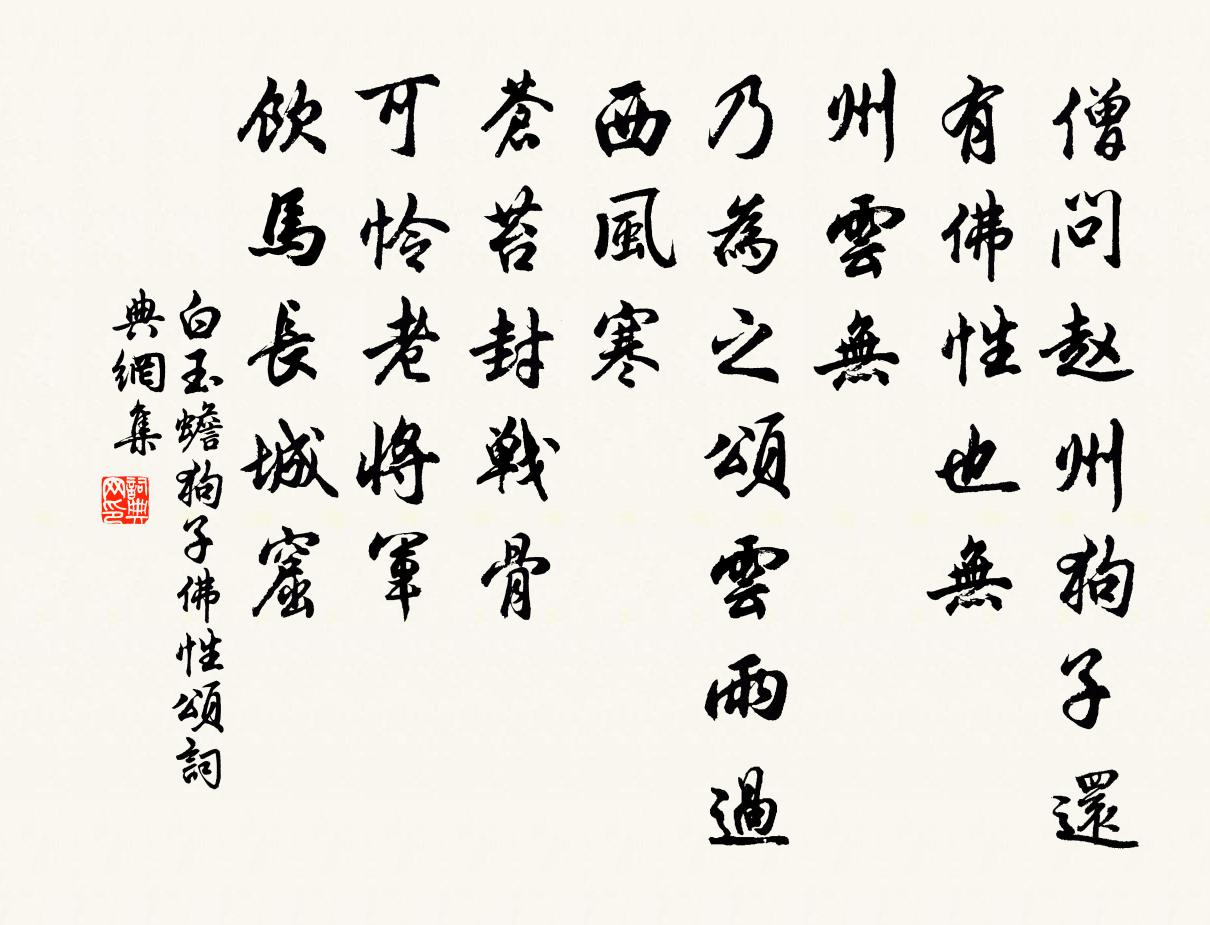 僧問赵州狗子還
有佛性也無
州雲無
乃為之頌雲雨過
西風寒
蒼苔封戦骨
可怜老将軍
飲馬長城窟
白玉蟾狗子佛性頌詞
典網集
詞典
网印